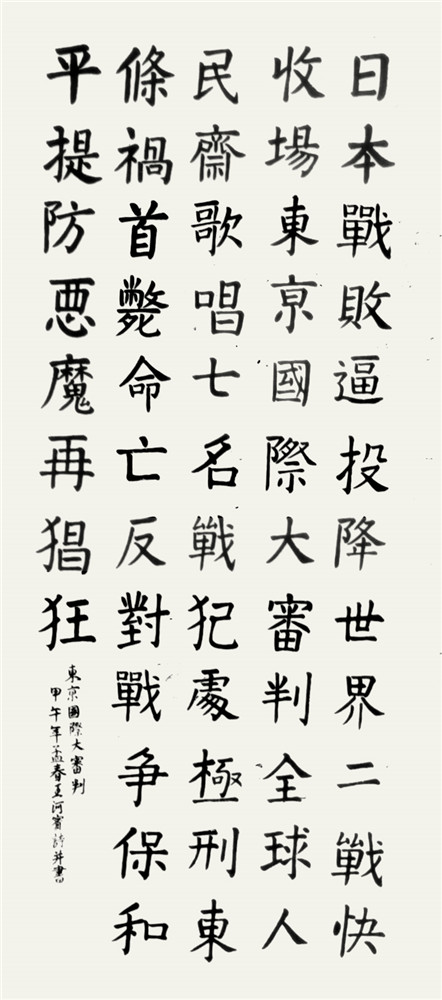 日本戰敗逼投降世界二戰快
收場東京國際大審判全球人
民齋歌唱七名戰犯處極刑東
條禍首斃命亡反對戰争保和
平提防悪魔再猖狂
東京國際大審判
甲午年孟春王河賓詩并書